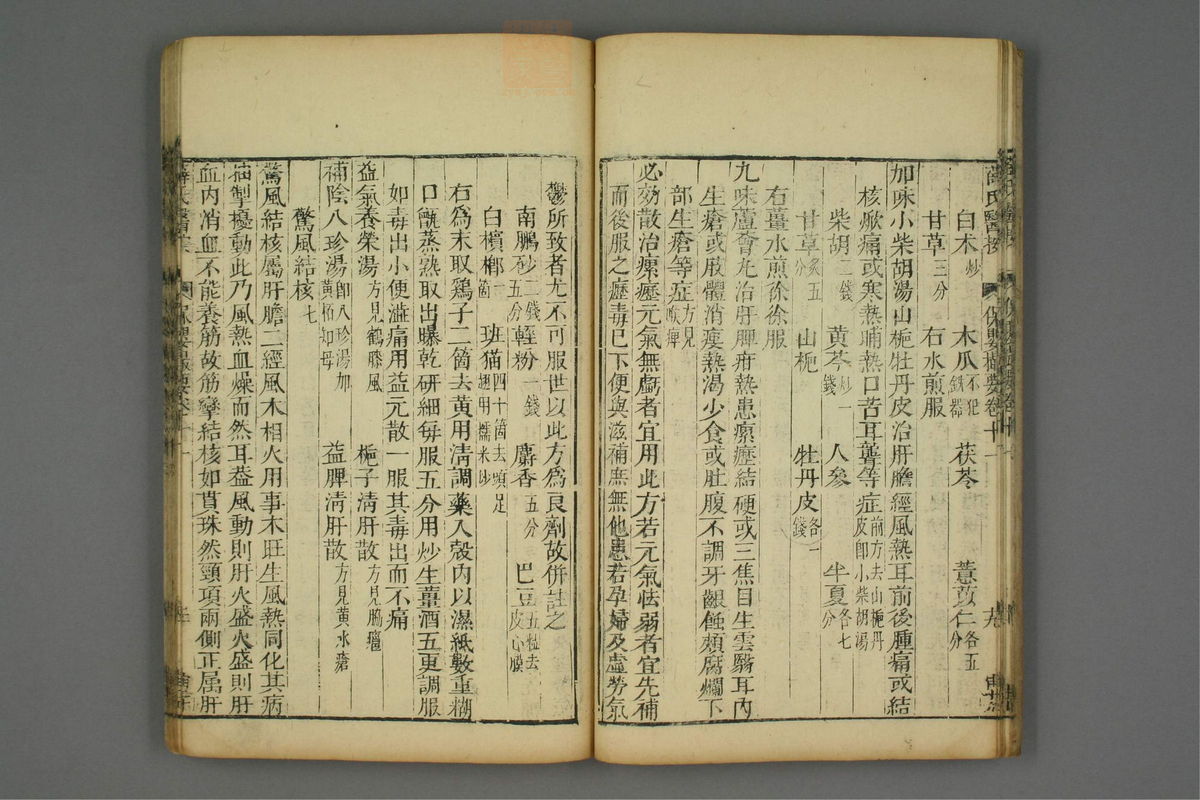 白朮炒　木瓜不犯鐵器　茯苓　薏苡仁各五分
甘草三分　右水煎服
加味小柴胡湯山梔牡丹皮治肝膽經風熱耳前後腫痛或結
核焮痛或寒熱晡熱口苦耳聾等症前方去山梔丹皮即小柴胡湯
柴胡二錢　黃芩炒一錢　人參　半夏各七分
甘草炙五分　山梔　牡丹皮各一錢
右薑水煎徐徐服
九味蘆薈丸治肝脾疳熱患瘰癧結硬或三焦目生雲翳耳內
生瘡或肢體消瘦熱渴少食或肚腹不調牙齦蝕頰腐爛下
部生瘡等症方見喉痺
必効散治瘰癧元氣無虧者宜用此方若元氣怯弱者宜先補
而後服之癧毒已下便與滋補庶無他患若孕婦及虛勞氣
鬱所致者尤不可服世以此方爲良劑故併註之
南鵬砂二錢五分　輕粉一錢　麝香五分　巴豆五粒去皮心膜
白檳榔一箇　班猫四十箇去頭足翅用糯米炒
右爲末取鷄子二箇去黃用清調藥入殼內以濕紙數重糊
口甑蒸熟取出曝乾研細每服五分用炒生薑酒五更調服
如毒出小便澁痛用益元散一服其毒出而不痛
益氣養榮湯方見鶴膝風　梔子清肝散方見胸癰
補陰八珍湯即八珍湯加黃栢知母　益脾清肝散方見黃水瘡
驚風結核七
驚風結核屬肝膽二經風木相火用事木旺生風熱同化其病
搐掣擾動此乃風熱血燥而然耳葢風動則肝火盛火盛則肝
血內消血不能養筋故筋攣結核如貫珠然頸項兩側正属肝